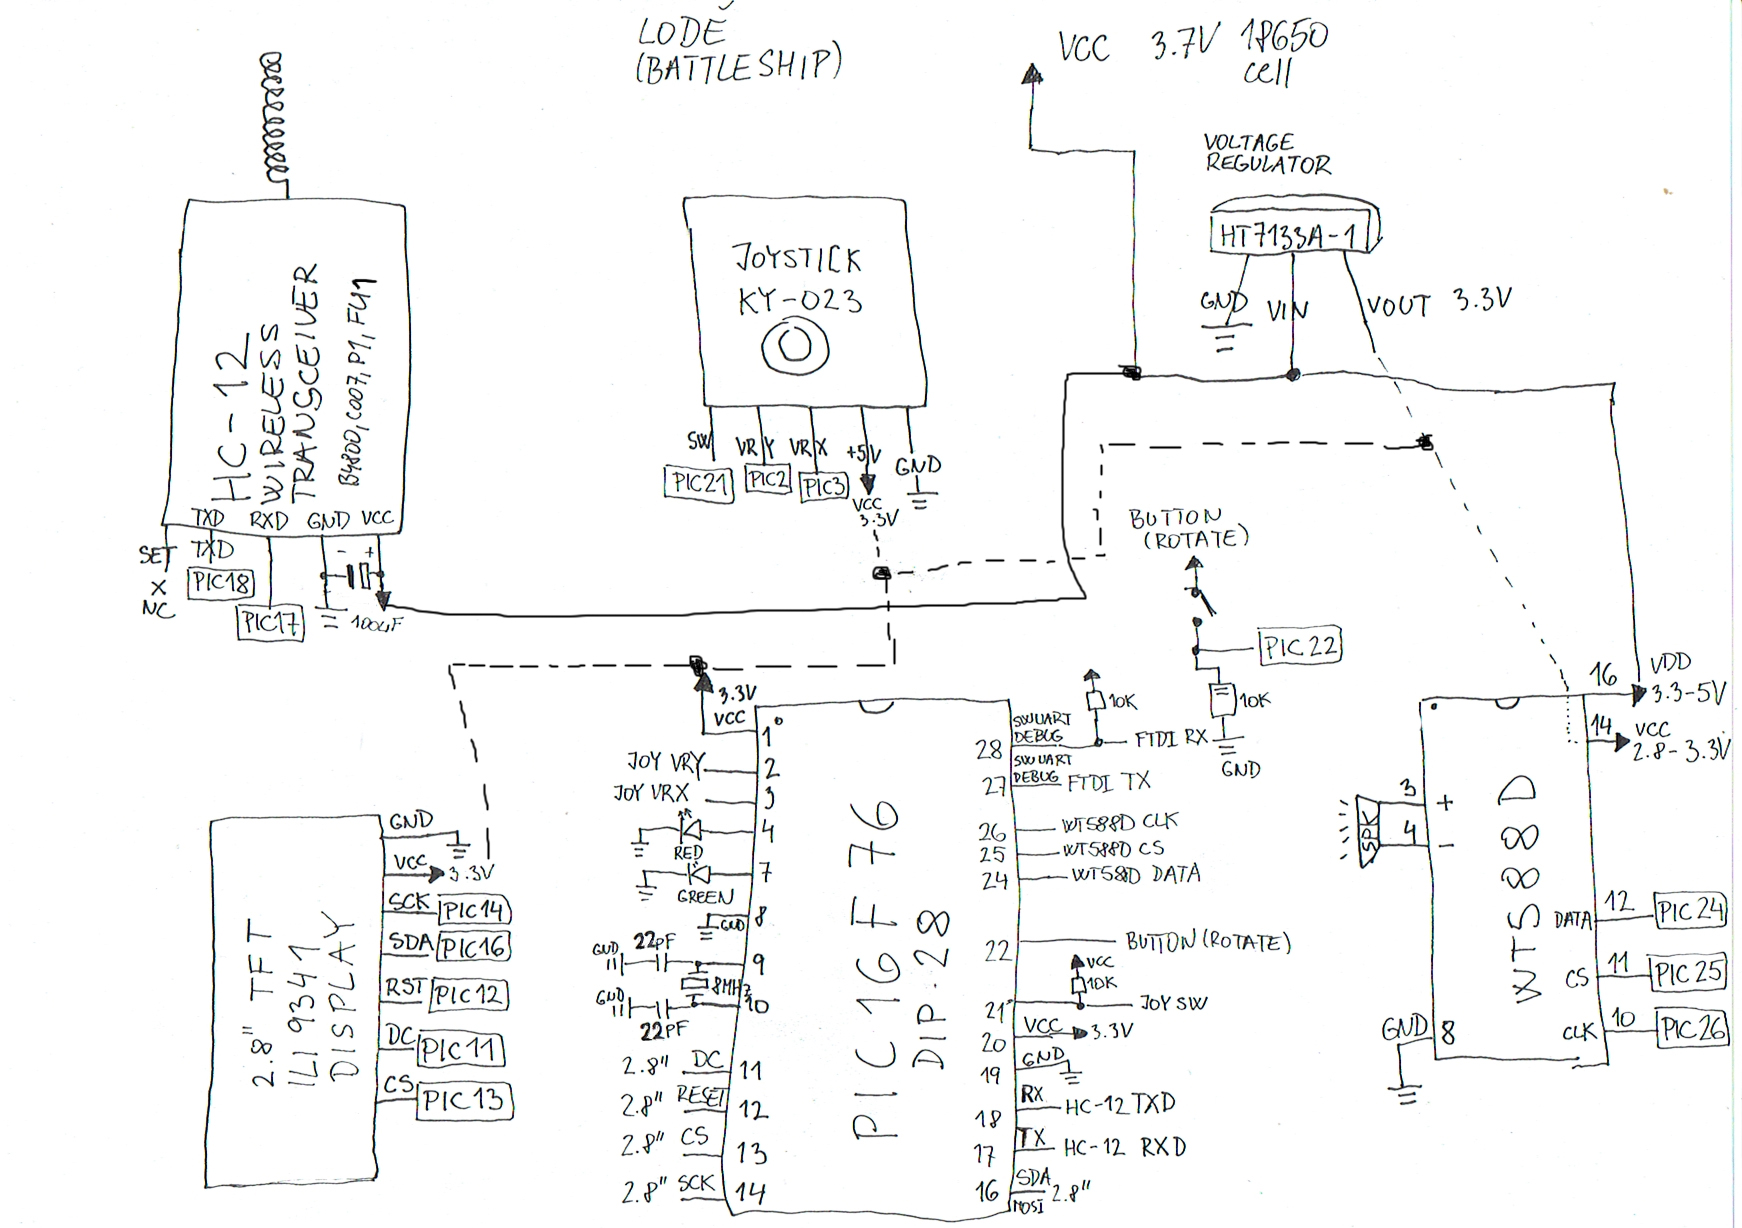 LODĚ
(BATTLESHIP)
VCC 3.7V 18650
cell
VOLTAGE
REGULATOR
HT7133A-1
GND
VIN
VOUT 3.3V
HC-12
WIRELESS
TRANSCEIVER
B4800, C007, P1, FU1
TXD
RXD
GND
VCC
SET
X
NC
TXD
PIC18
PIC17
- +
100uF
JOYSTICK
KY-023
SW
VRY
VRX
+5V
GND
PIC21
PIC2
PIC3
VCC
3.3V
BUTTON
(ROTATE)
PIC22
10K
GND
3.3V
VCC
1
JOY VRY
2
JOY VRX
3
4
RED
7
GREEN
8
GND
GND
22pF
9
8MHz
GND
10
22pF
2.8" DC
11
2.8" RESET
12
2.8" CS
13
2.8" SCK
14
PIC16F76
DIP-28
SWUART
DEBUG
28
10K
FTDI RX
SWUART
DEBUG
27
FTDI TX
26
WT588D CLK
25
WT588D CS
24
WT58D DATA
22
BUTTON (ROTATE)
VCC
10K
21
JOY SW
20
VCC
3.3V
19
GND
18
RX
HC-12 TXD
17
TX
HC-12 RXD
16
SDA
MOSI
2.8"
2.8" TFT
ILI9341
DISPLAY
GND
VCC
3.3V
SCK
PIC14
SDA
PIC16
RST
PIC12
DC
PIC11
CS
PIC13
WT588D
16
VDD
3.3-5V
14
VCC
2.8-3.3V
SPK
3
+
4
-
DATA
12
PIC24
CS
11
PIC25
CLK
10
PIC26
GND
8